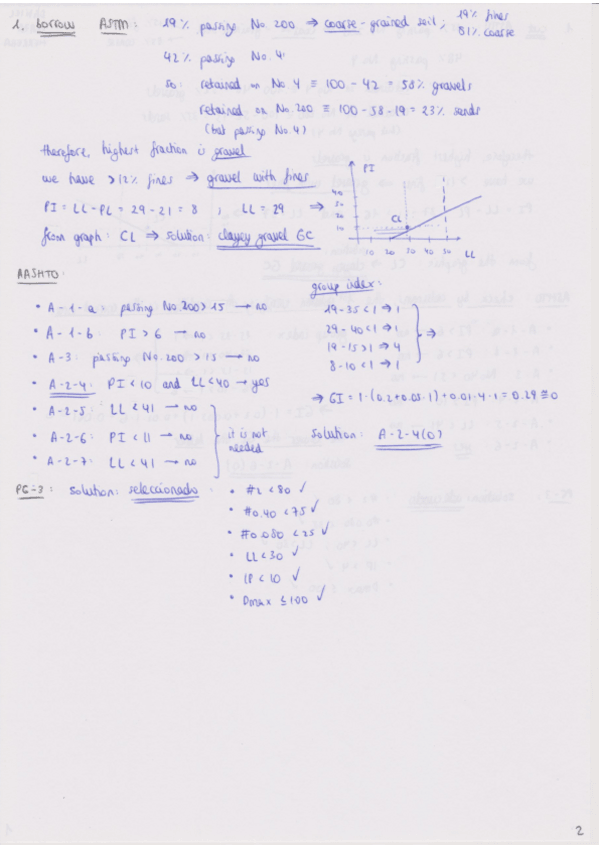 1. borrow ASTM: 19% passing No. 200 ⇒ coarse-grained soil; 19% fines
81% coarse
42% passing No. 4.
so: retained on No 4 ≡ 100 - 42 = 58% gravels
retained on No. 200 ≡ 100 - 58 - 19 = 23% sands
(but passing No. 4)
therefore, highest fraction is gravel
we have >12% fines ⇒ gravel with fines
PI = LL - PL = 29 - 21 = 8 ; LL = 29 ⇒
from graph: CL ⇒ solution: clayey gravel GC
PI
40
30
20
10
CL
10 20 30 40 50 LL
AASHTO:
• A-1-a: passing No 200 > 15 → no
• A-1-b PI > 6 → no
• A-3: passing No. 200 > 15 → no
• A-2-4: PI < 10 and LL < 40 → yes
• A-2-5: LL < 41 → no
• A-2-6: PI < 11 → no
• A-2-7: LL < 41 → no
it is not
needed
group index:
19 - 35 < 1 ⇒ 1
29 - 40 < 1 ⇒ 1
19 - 15 > 1 ⇒ 4
8 - 10 < 1 ⇒ 1
⇒
⇒ GI = 1·(0.2+0.05·1)+0.01·4·1 = 0.29 ≅ 0
solution: A-2-4(0)
PG-3: solution: seleccionado:
• #2 < 80 ✓
• #0.40 < 75 ✓
• #0.080 < 25 ✓
• LL < 30 ✓
• IP < 10 ✓
• Dmax ≤ 100 ✓
2